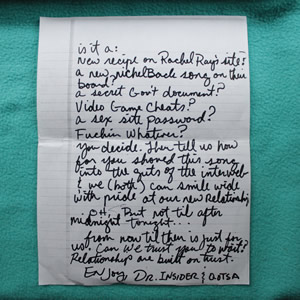 is it a:
New recipe on Rachel Ray's site?
a new nickelBack song on their
board?
a secret Gov't document?
Video Game Cheats?
a sex site password?
Fuckin Whatever?
You decide. Then tell us how
far you shoved this song
into the guts of the interweb
& we (both) can smile wide
with pride at our new Relationship
oh, But not til after
midnight tonight...
from now til then is just for
us. Can we trust you to wait?
Relationships are built on trust.
Enjoy Dr. Insider &